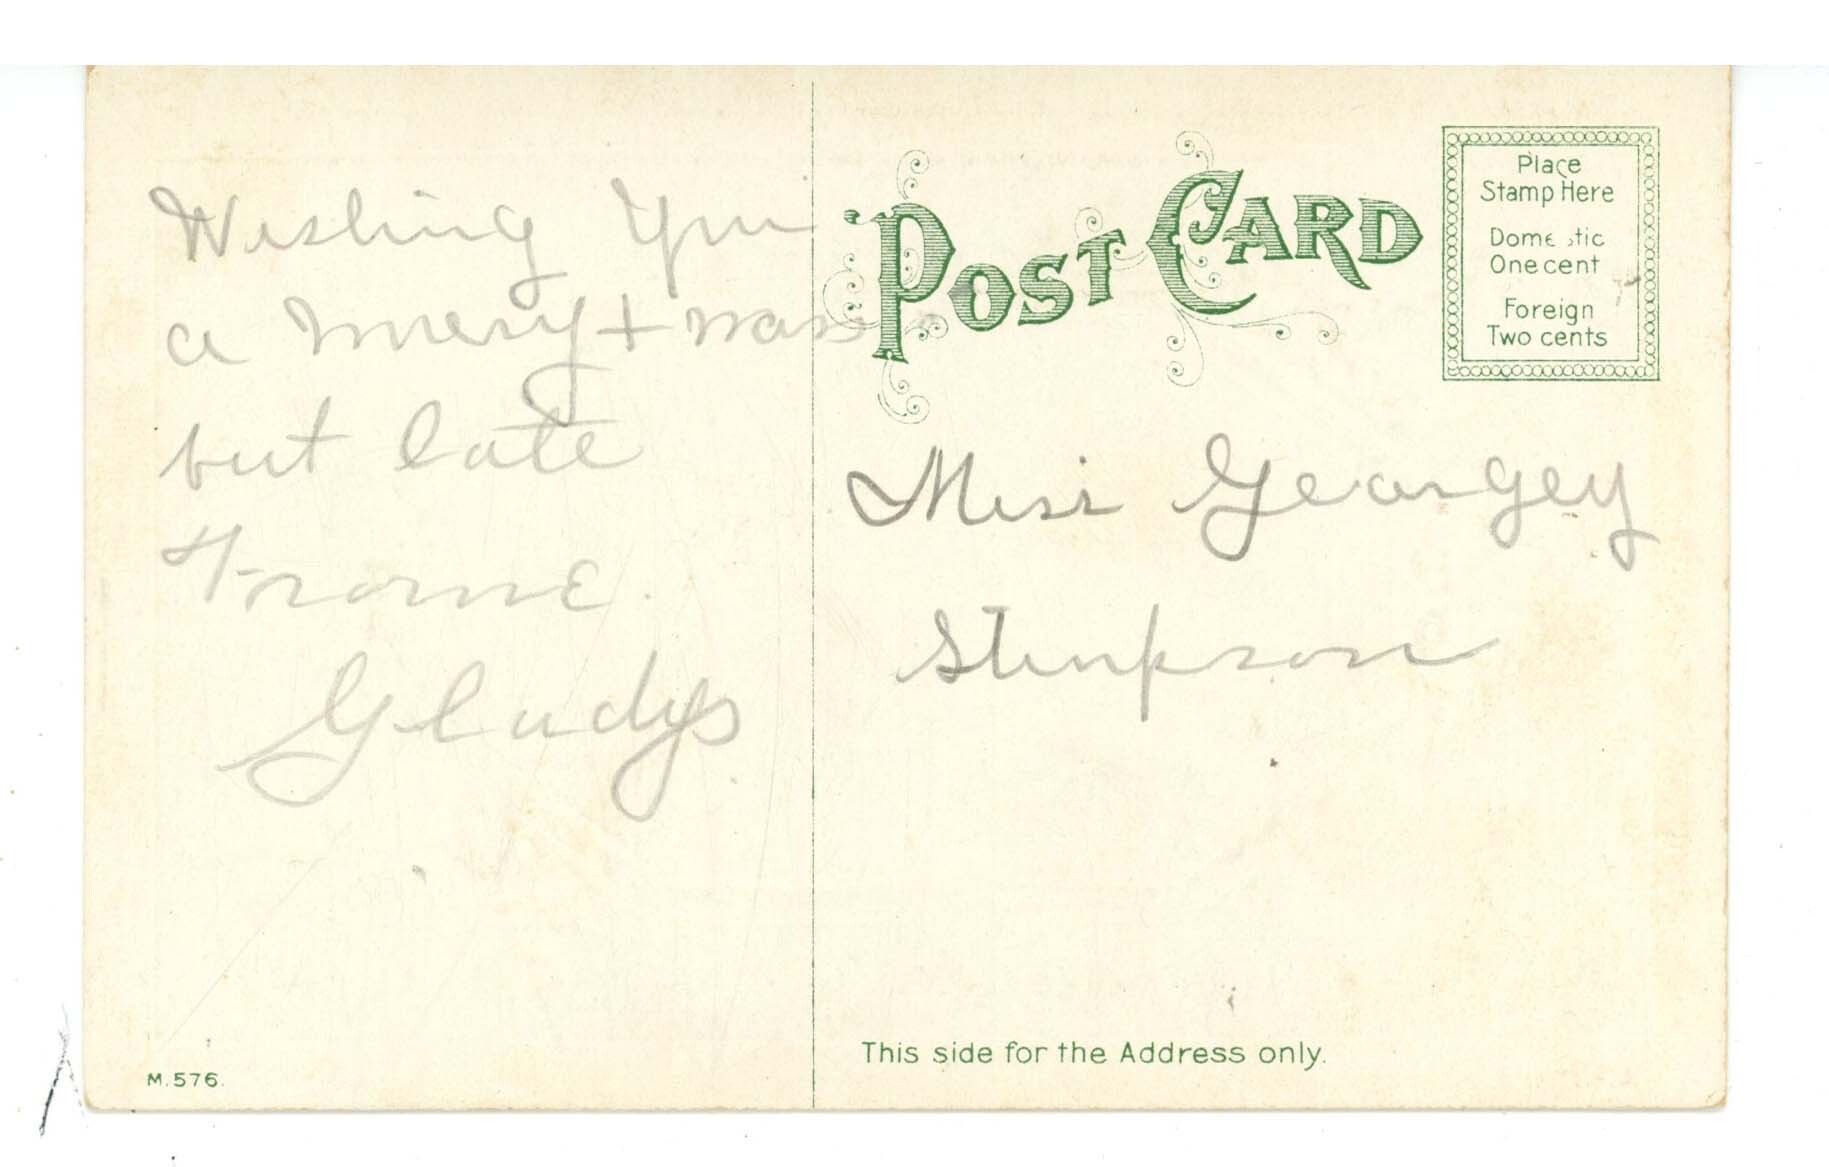 Wishing you
a merry + xmas
but late
From
Gladys
POST CARD
Place
Stamp Here
Domestic
One cent
Foreign
Two cents
Miss Georgey
Stimpson
This side for the Address only.
M. 576.